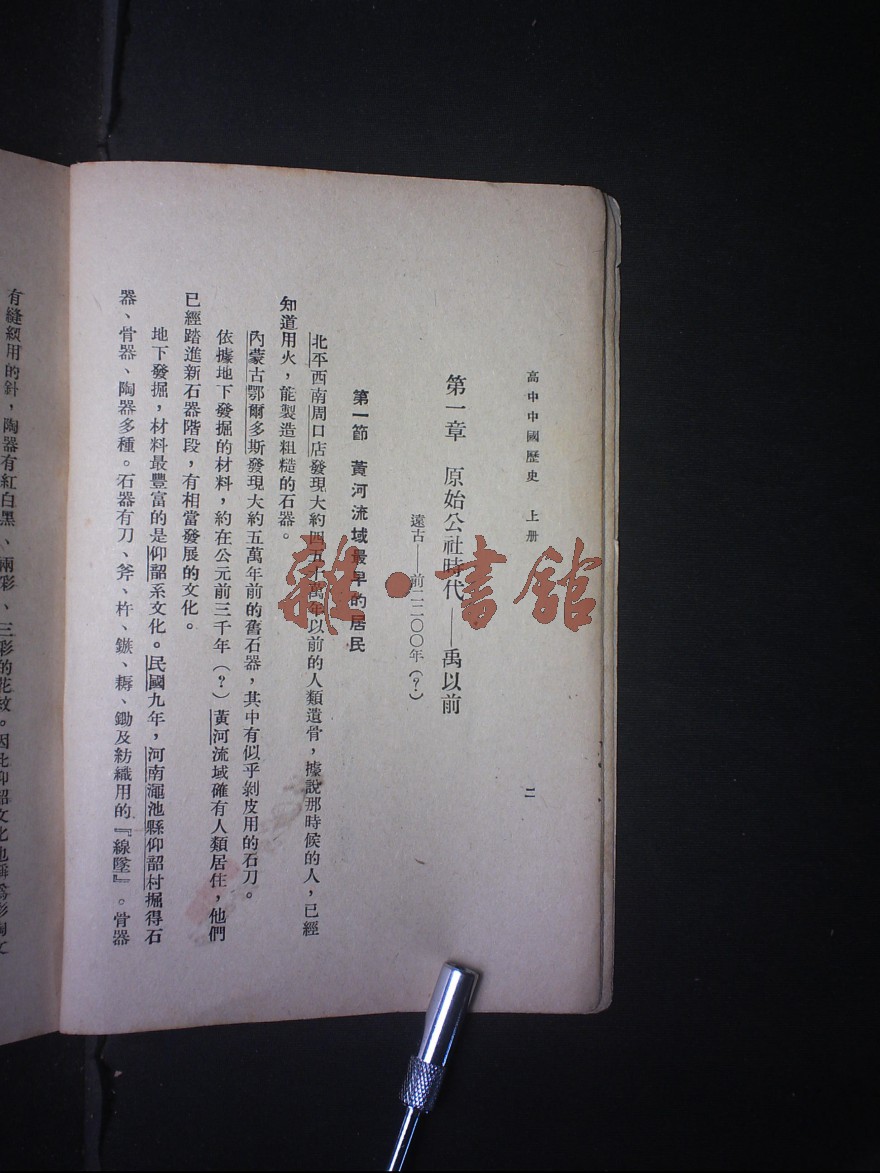 高中中國歷史　上册
二
第一章　原始公社時代——禹以前
遠古——前二二〇〇年(？)
第一節　黃河流域最早的居民
北平西南周口店發現大約四五十萬年以前的人類遺骨，據說那時候的人，已經
知道用火，能製造粗糙的石器。
內蒙古鄂爾多斯發現大約五萬年前的舊石器，其中有似乎剝皮用的石刀。
依據地下發掘的材料，約在公元前三千年(？)黃河流域確有人類居住，他們
已經踏進新石器階段，有相當發展的文化。
地下發掘，材料最豐富的是仰韶系文化。民國九年，河南澠池縣仰韶村掘得石
器、骨器、陶器多種。石器有刀、斧、杵、鏃、耨、鋤及紡織用的『線墜』。骨器
有縫紉用的針，陶器有紅白黑、兩彩、三彩的花紋。因此仰韶文化也稱爲彩陶文
雜·書館